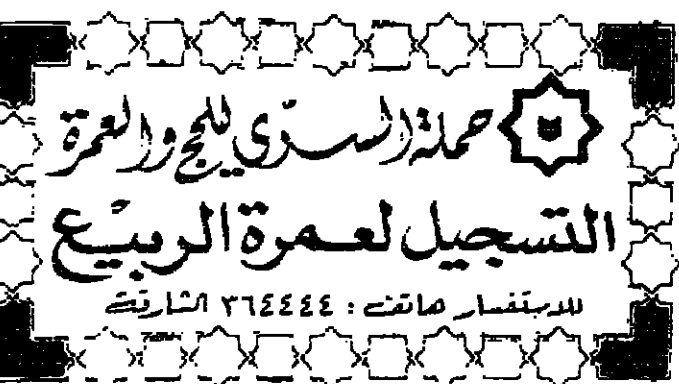 حملة السري للحج والعمرة
التسجيل لعمرة الربيع
للاستفسار هاتف : ٣٦٤٤٤٤ الشارقة